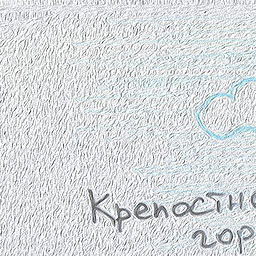 Крепостно
гор